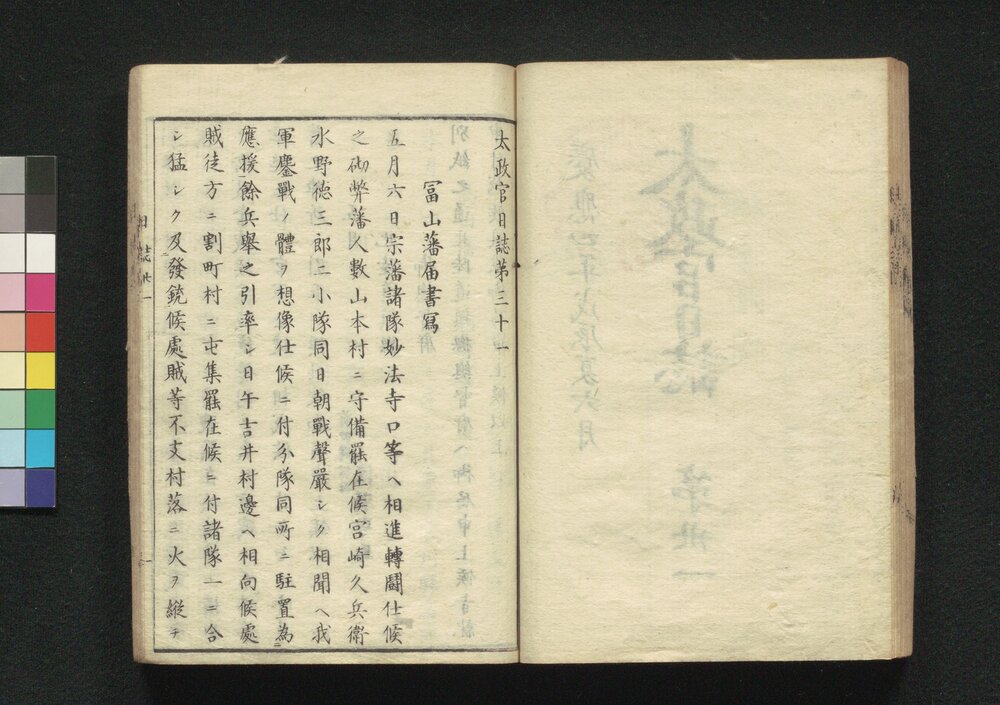 太政官日誌第三十一
冨山藩届書冩
五月六日宗藩諸隊妙法寺口等ヘ相進轉鬪仕候
之砌弊藩人數山本村ニ守備罷在候宮崎久兵衛
水野徳三郎二小隊同日朝戰聲嚴シク相聞ヘ我
軍鏖戰ノ體ヲ想像仕候ニ付分隊同所ニ駐置為
應援餘兵舉之引率シ日午吉井村邊ヘ相向候處
賊徒方ニ割町村ニ屯集罷在候ニ付諸隊一ニ合
シ猛シク及發銃候處賊等不支村落ニ火ヲ縱チ
日誌卅一
一